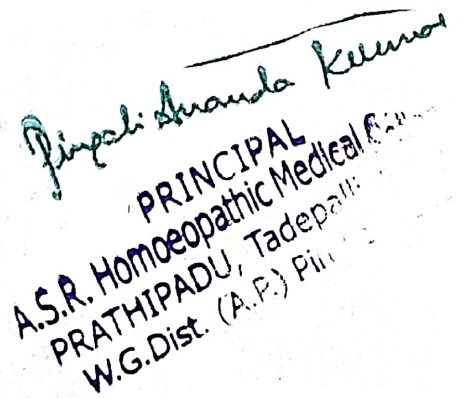 Pingali Ananda Kumar
PRINCIPAL
A.S.R. Homoeopathic Medical
PRATHIPADU, Tadepalli
W.G.Dist. (A.P.) Pin